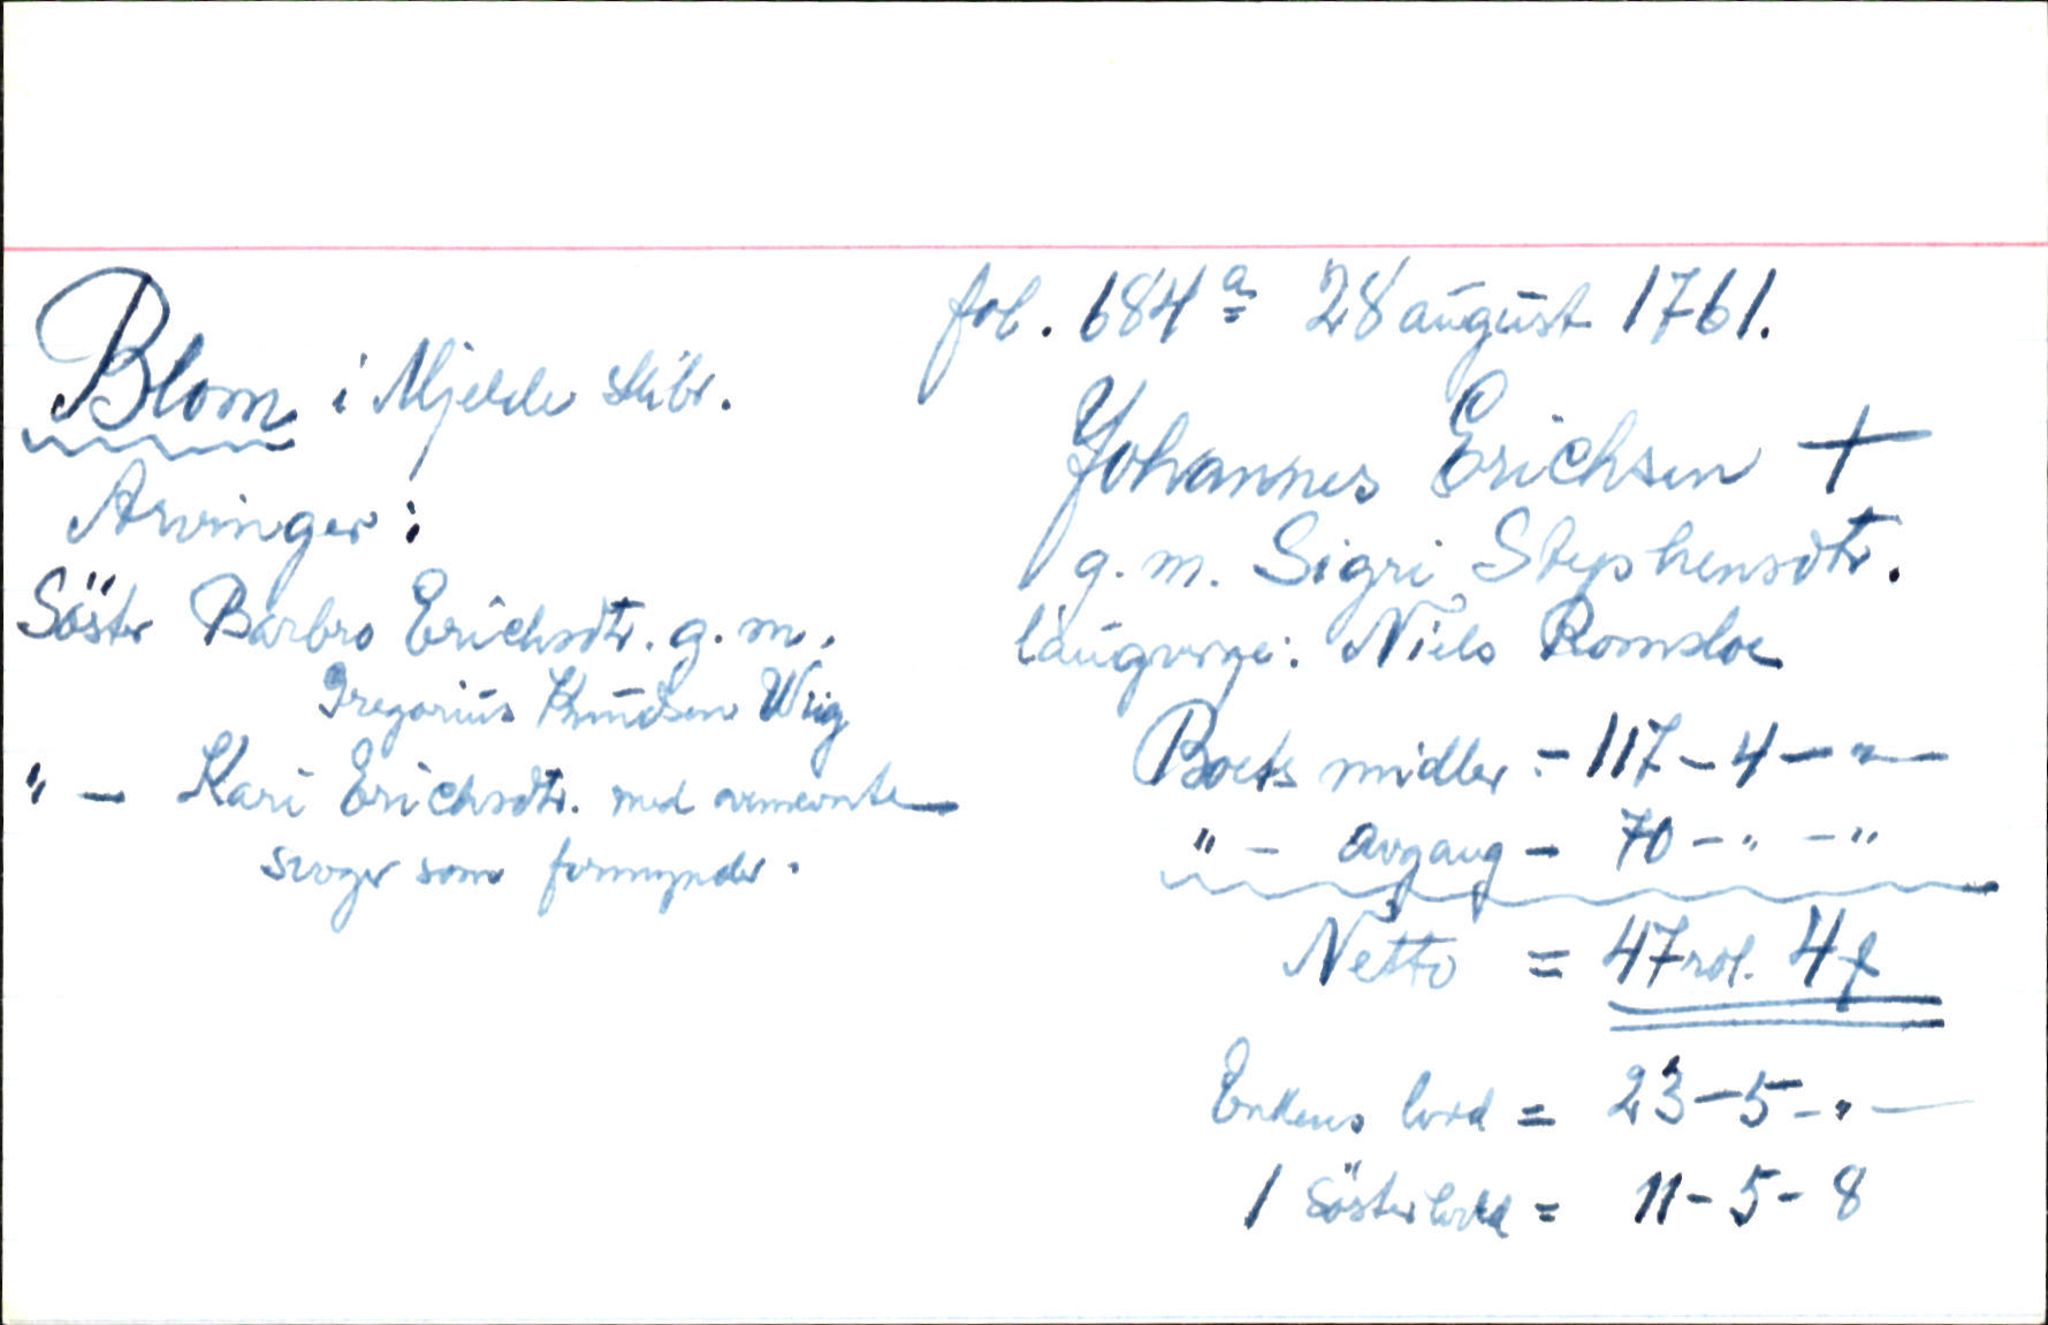 fol. 684 a 28 august 1761.
Blom i Mjelde skibr.
Johannes Erichsen +
g. m. Sigri Stephensdtr.
laugverge: Niels Romsloe
Arvinger:
Söster Barbro Erichsdtr. g. m.
Gregorius Knudsen Wiig
" - Kari Erichsdtr. med ovnevnte
svoger som formynder.
Boets midler - 117 - 4 - " -
" - avgang - 70 - " - "
Netto = 47 rdl. 4
Enkens lod = 23 - 5 - " -
1 Söster = 11 - 5 - 8